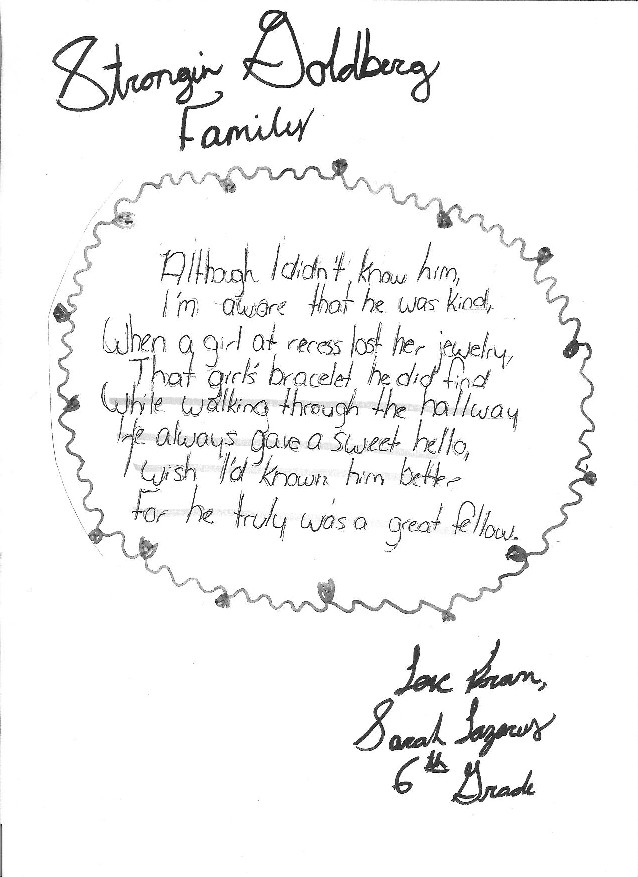 Strongin Goldberg
Family
Although I didn't know him,
I'm aware that he was kind,
When a girl at recess lost her jewelry,
That girl's bracelet he did find
While walking through the hallway
He always gave a sweet hello,
I wish I'd known him better
For he truly was a great fellow.
Love
Sarah Lazarus
6th Grade